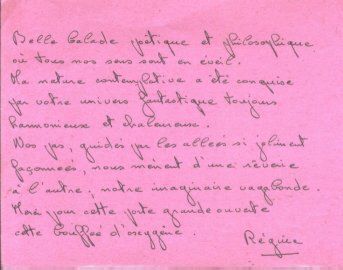 Belle balade poétique et philosophique
où tous nos sens sont en éveil.
Ma nature contemplative a été conquise
par votre univers fantastique toujours
harmonieux et chaleureux.
Nos pas, guidés par les allées si joliment
façonnées, nous mènent d'une rêverie
à l'autre ; notre imaginaire vagabonde.
Merci pour cette porte grande ouverte
cette bouffée d'oxygène.
Régine